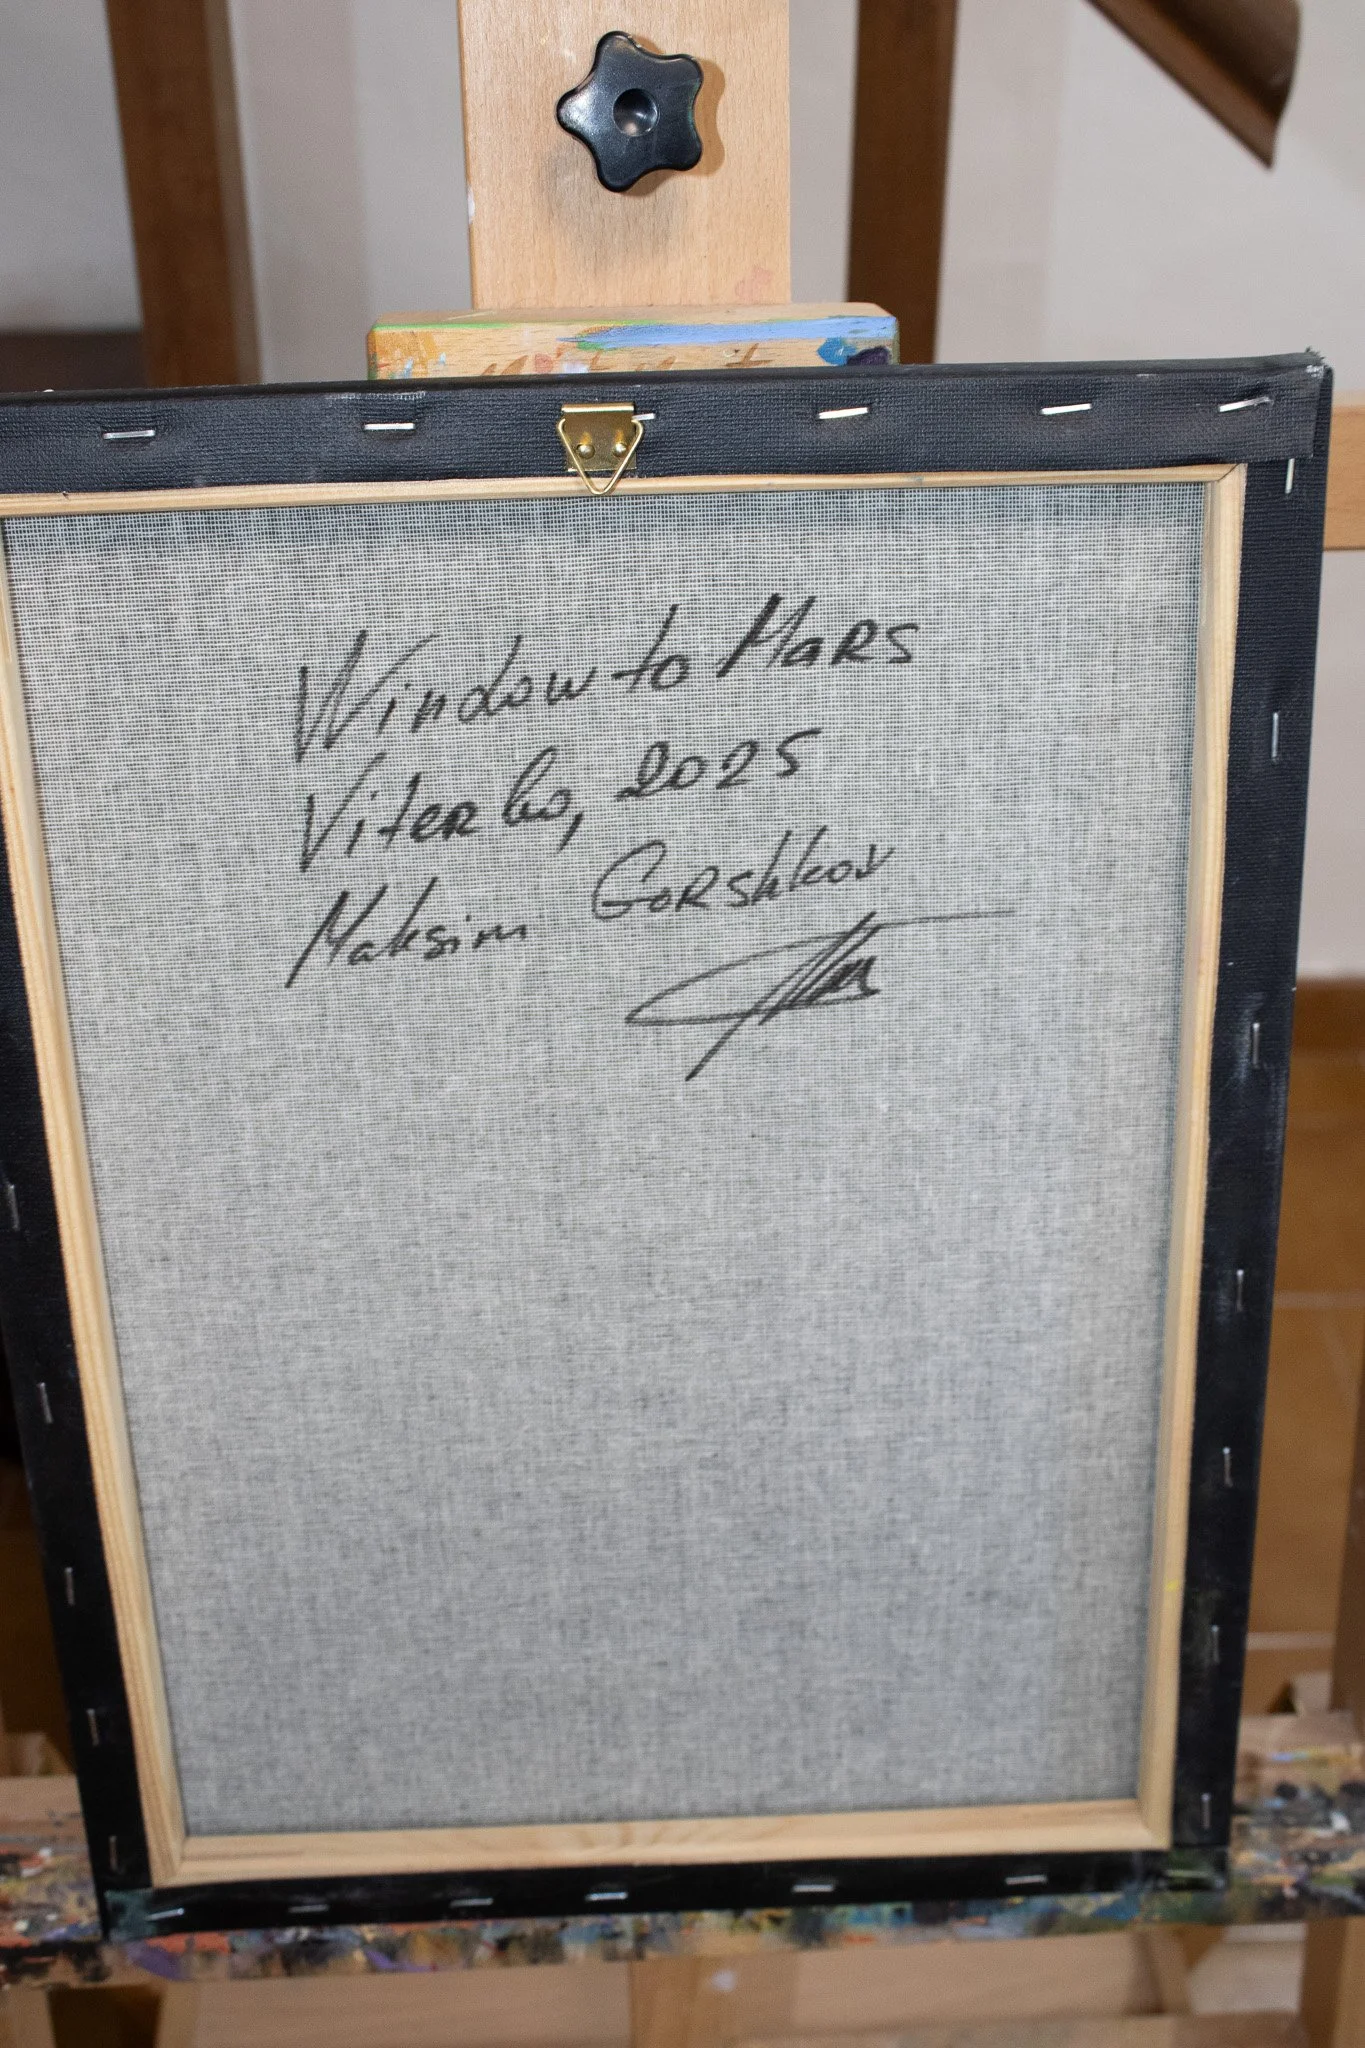 Window to Mars
Viterbo, 2025
Maksim Gorshkov